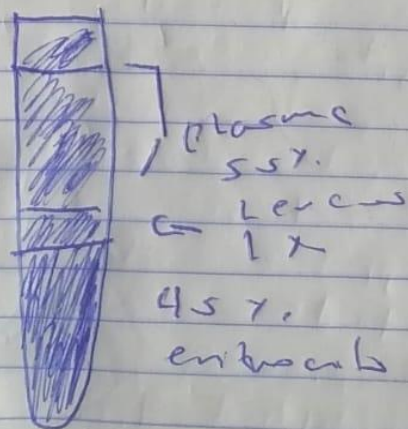 plasma
55%.
← Leucos
1%
45%.
eritrocito